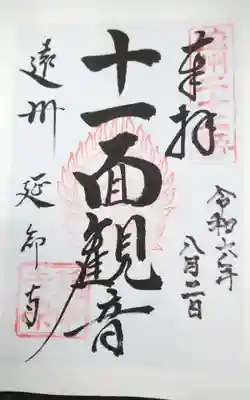 奉拝
令和六年
八月二日
十一面観音
遠州 延命寺